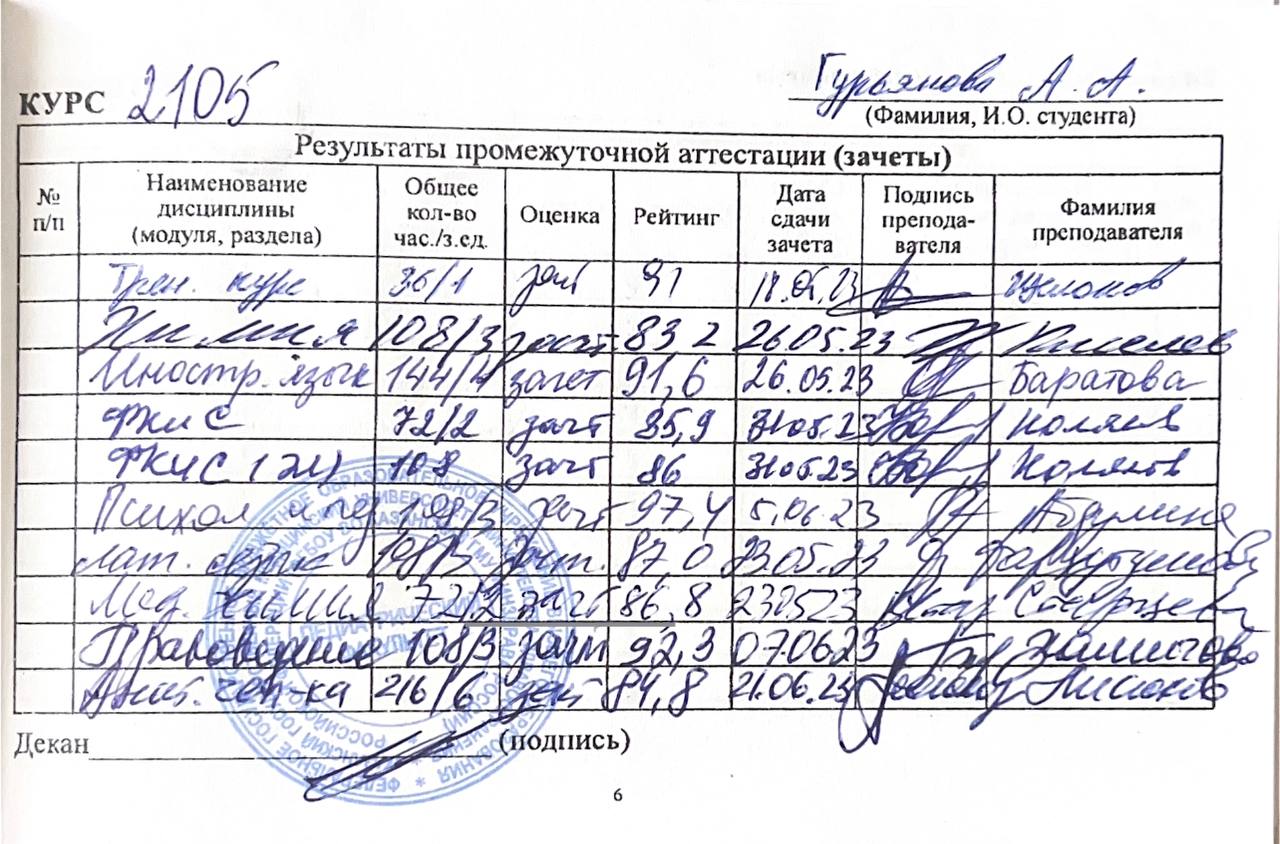 КУРС 2105
Гурьянова А. А.
(Фамилия, И.О. студента)
Результаты промежуточной аттестации (зачеты)
№ п/п Наименование дисциплины (модуля, раздела) Общее кол-во час./з.ед. Оценка Рейтинг Дата сдачи зачета Подпись препода-вателя Фамилия преподавателя
курс 36/1 зачт 91 18.05.23
Химия 108/3 зачт 83 2 26.05.23 Киселев
Иностр. язык 144/4 зачет 91,6 26.05.23 Баратова
ФКиС 72/2 зачт 85,9 31.05.23
ФКиС (ЭЛ) 108 зачт 86 31.05.23
Психол и пед 108/3 зачт 97,4 5.06.23
Лат. язык 108/3 зачт. 87,0 23.05.23
Мед. химия 72/2 зачт 86,8 230523
Правоведение 108/3 зачт 92,3 070623
216/6 зачт 84,8 21.06.23
Декан (подпись)
6